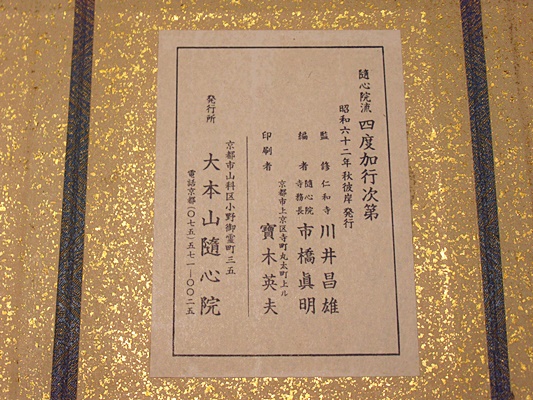 隨心院流 四度加行次第
昭和六十二年秋彼岸発行
監修 仁和寺 川井昌雄
編者 隨心院寺務長 市橋眞明
京都市上京区寺町丸太町上ル
印刷者 寶木英夫
京都市山科区小野御霊町三五
発行所 大本山隨心院
電話京都(〇七五)五七一―〇〇二五